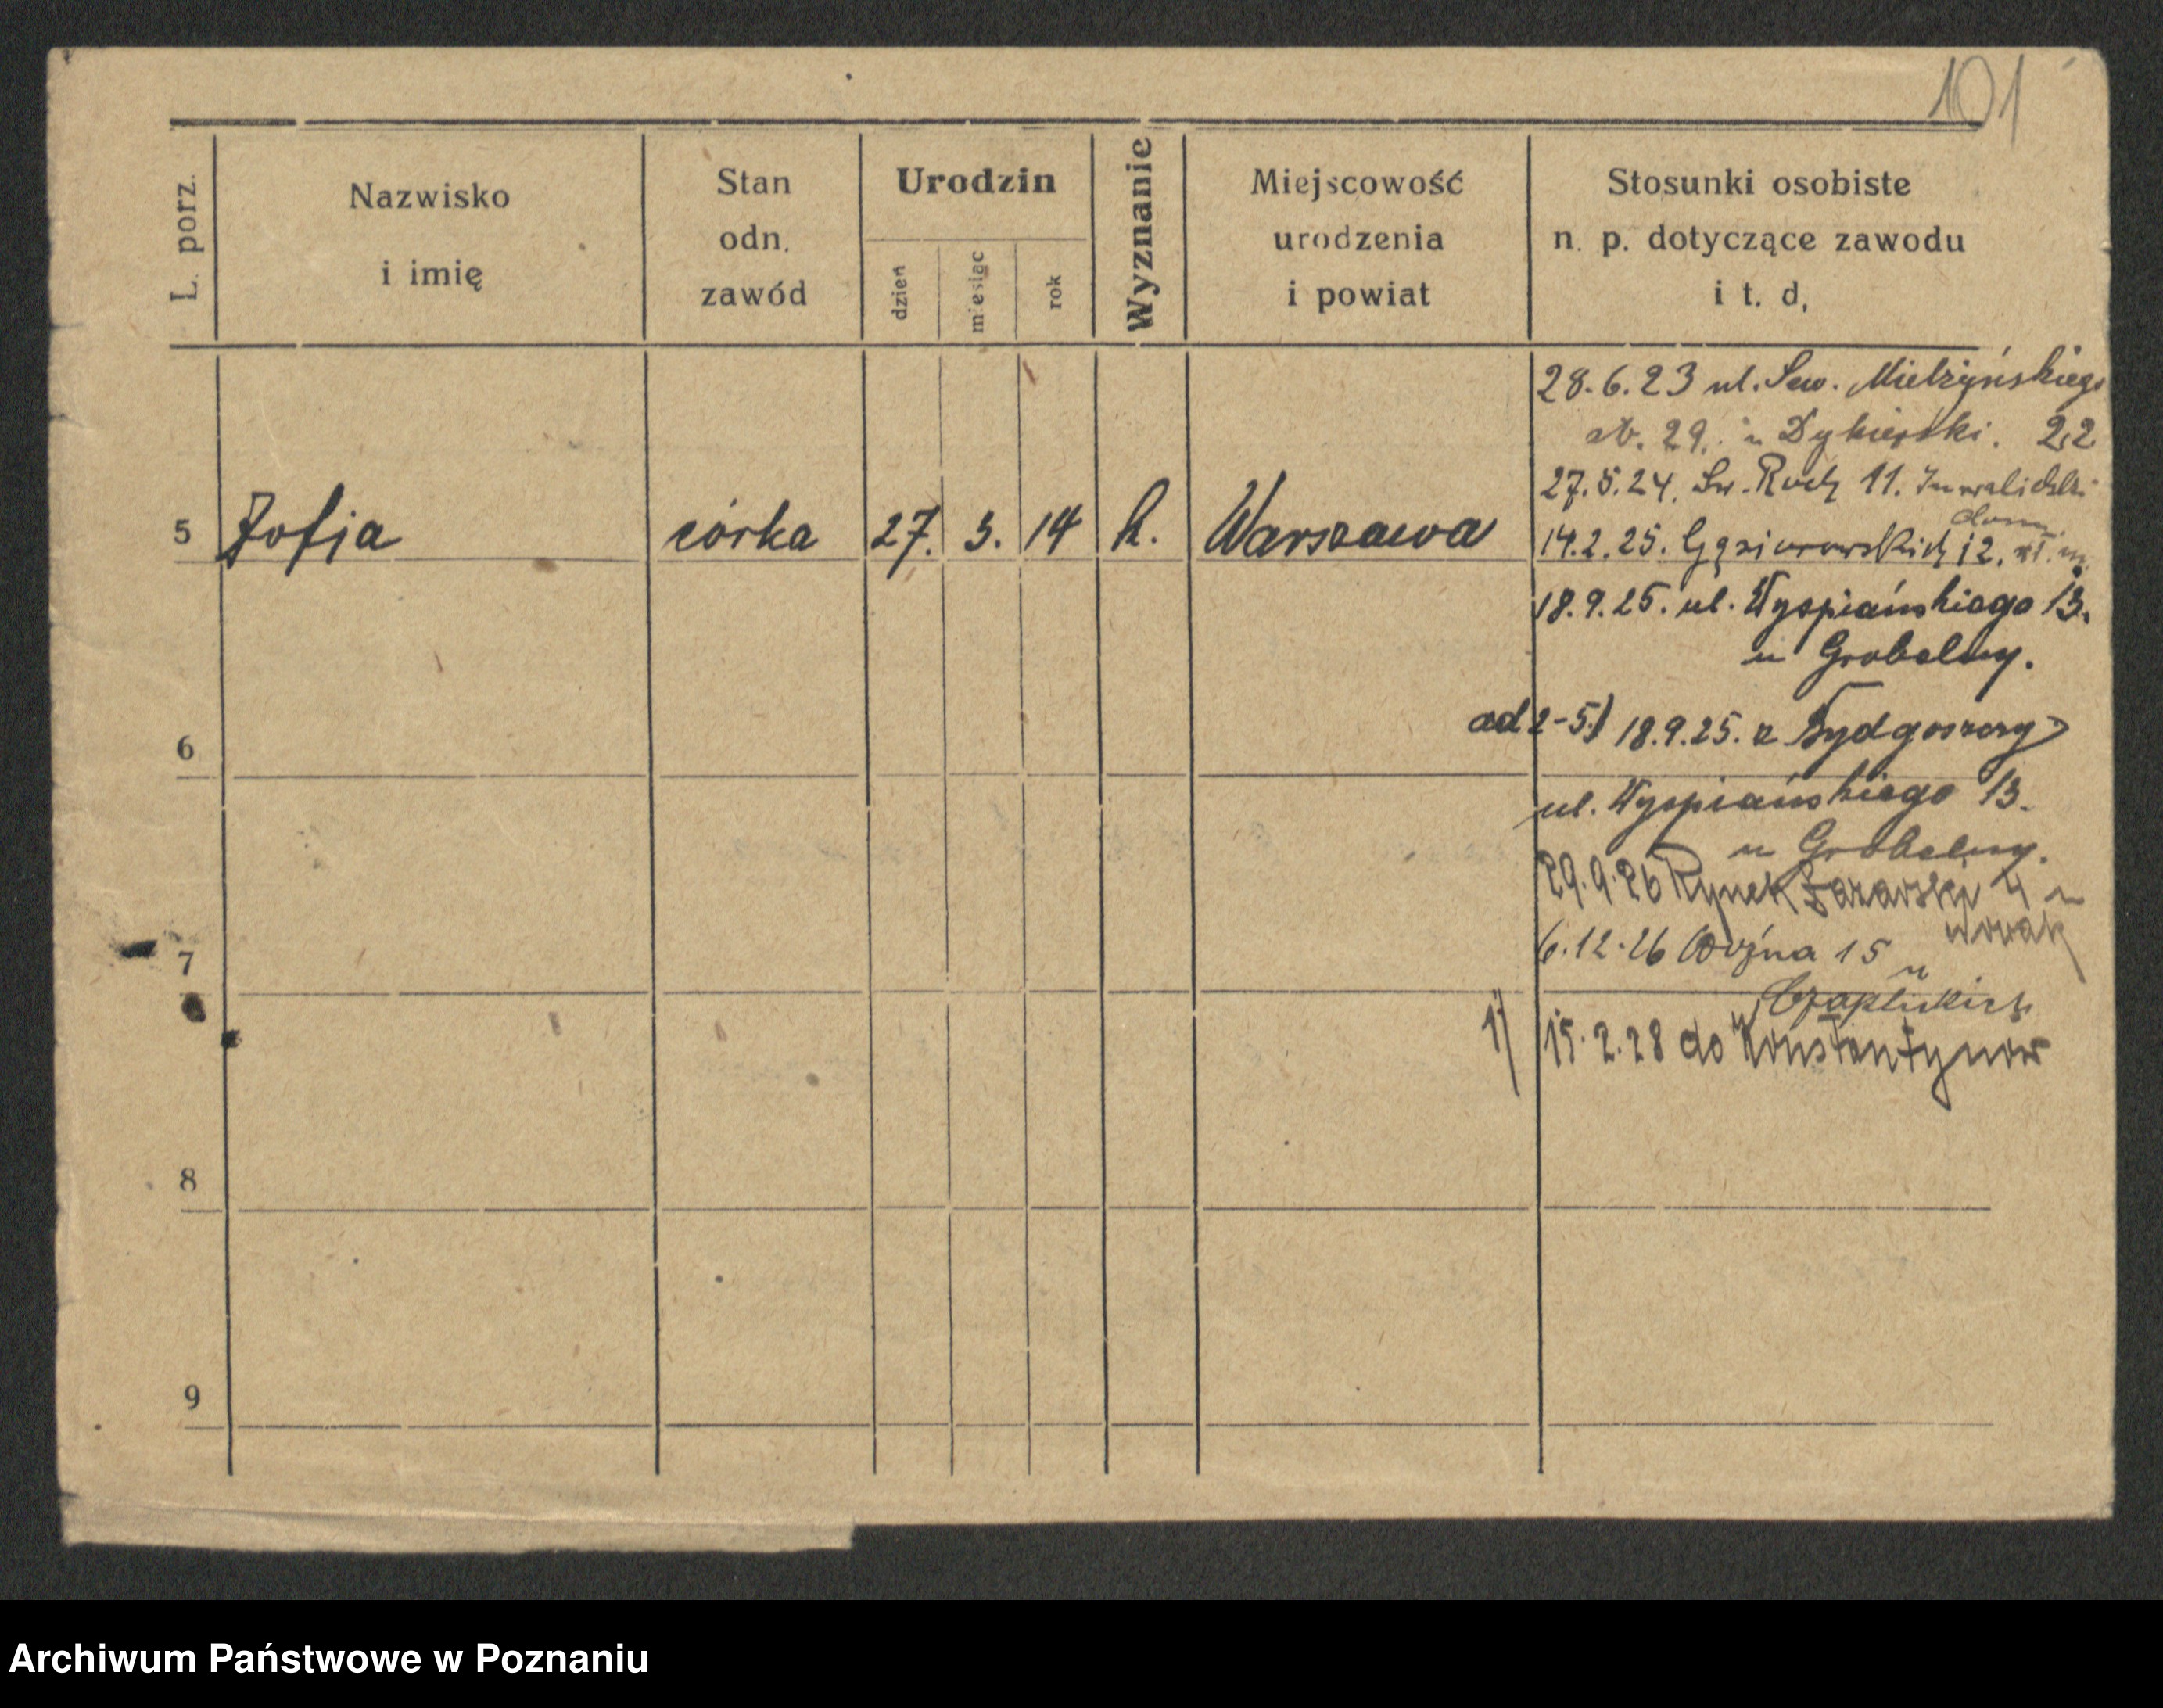 101
L. porz.
Nazwisko
i imię
Stan
odn.
zawód
Urodzin
dzień
miesiąc
rok
Wyznanie
Miejscowość
urodzenia
i powiat
Stosunki osobiste
n. p. dotyczące zawodu
i t. d,
28.6.23 ul. Sew. Mielżyńskiego
22
27.5.24. Św. Roch 11.
5 Zofja córka 27. 3. 14 k. Warszawa
14.2.25. Gąsiorowskich 12.
18.9.25. ul. Wyspiańskiego 13.
u Grobelny.
ad 2-5.) 18.9.25. z Bydgoszczy
6
ul. Wyspiańskiego 13.
u Grobelny.
29.9.26 Rynek Łazarski 4 u
Nowak
6.12.26 15 u
7
1) 15.2.28 do Konstantynów
8
9
Archiwum Państwowe w Poznaniu